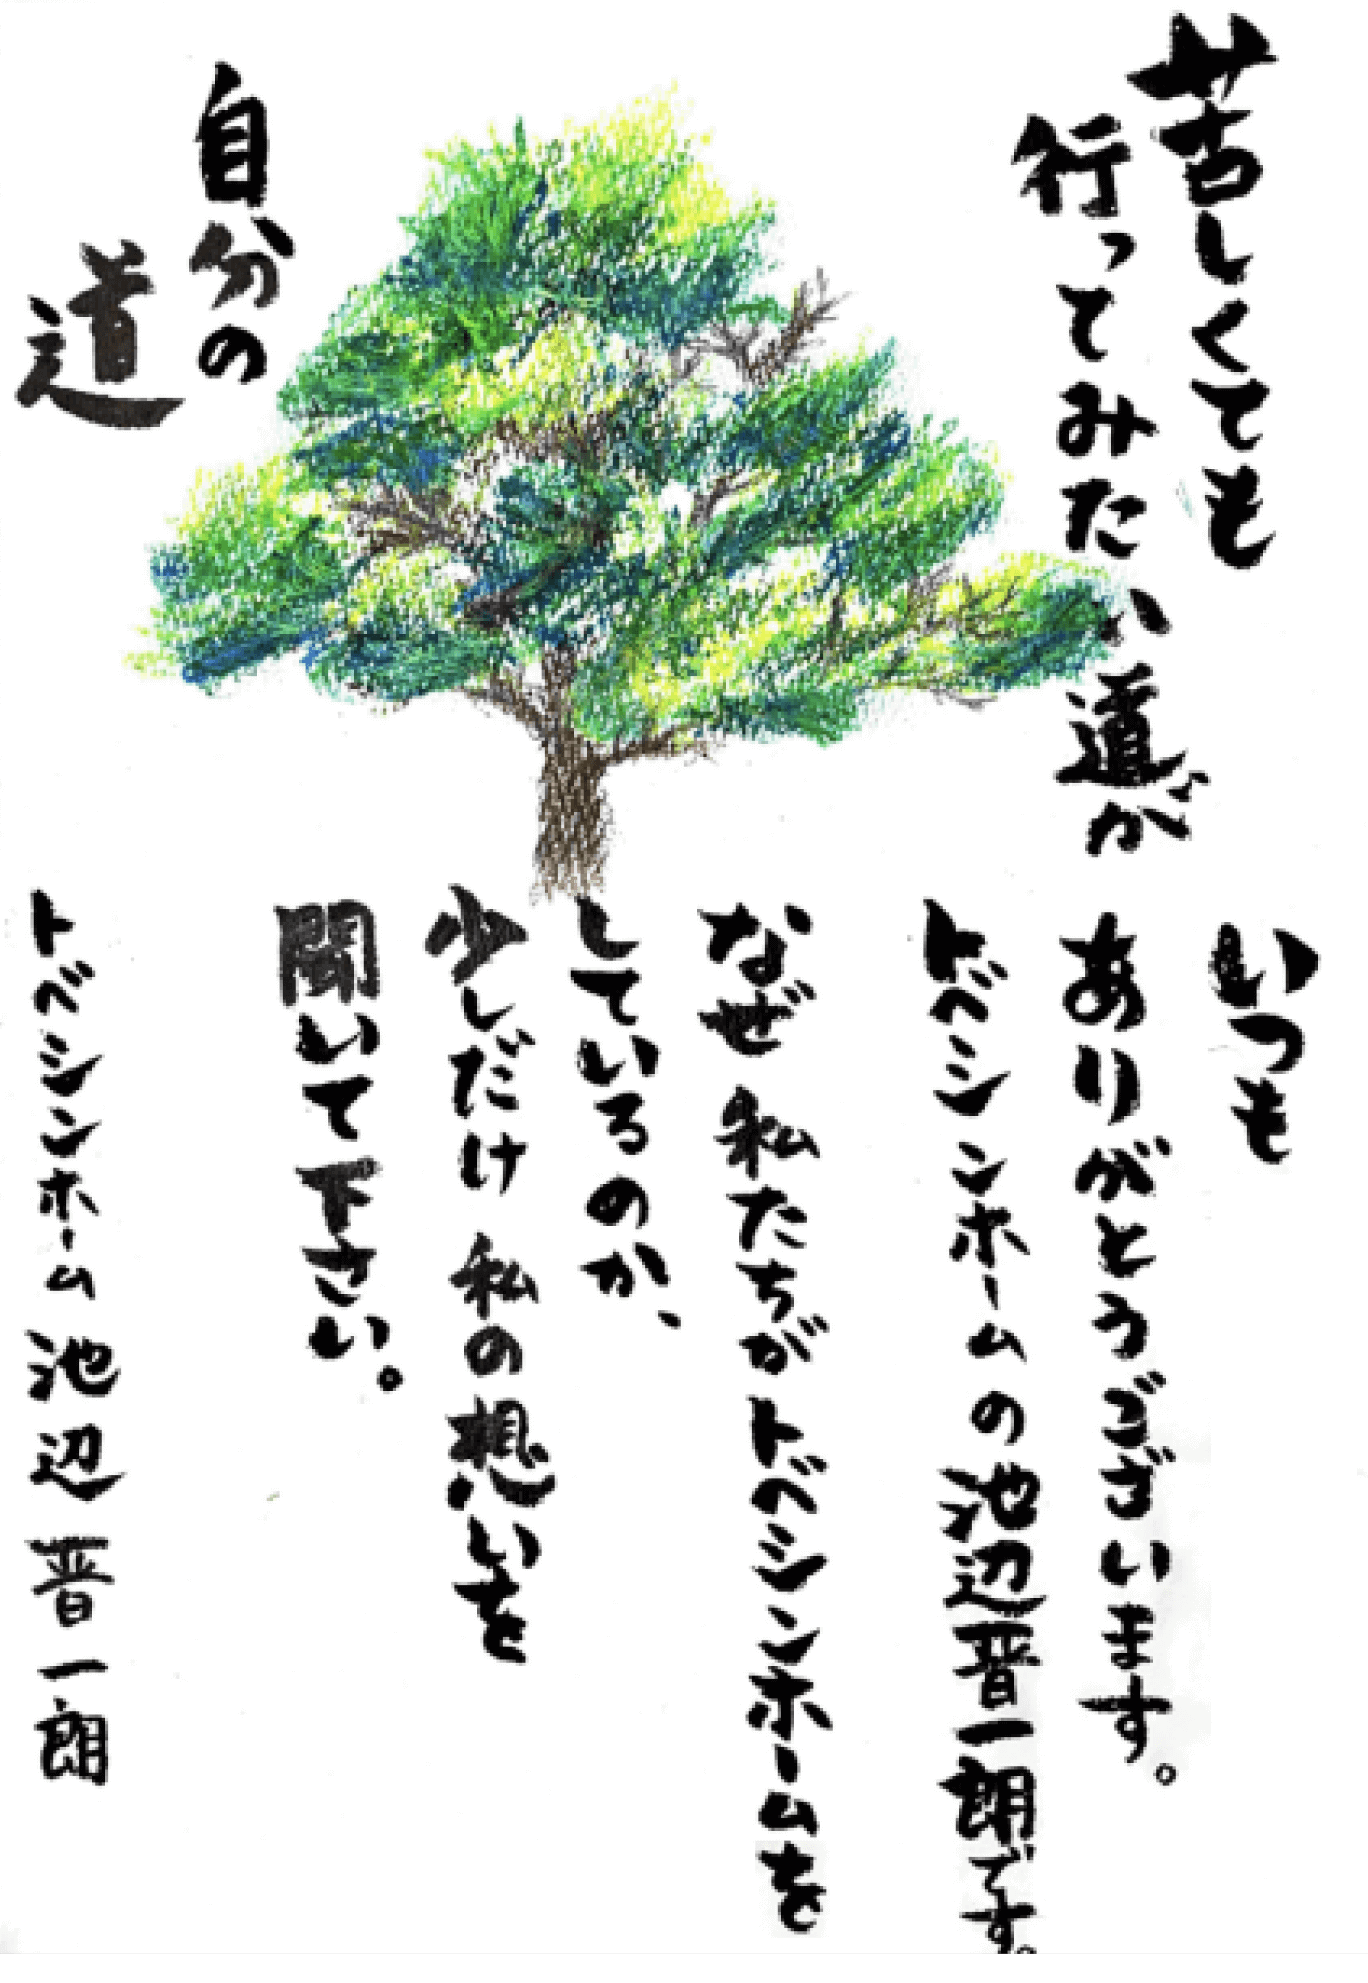 苦しくても
行ってみたい道が
自分の
道
いつも
ありがとうございます。
トベシンホームの池辺晋一朗です。
なぜ私たちがトベシンホームを
しているのか、
少しだけ私の想いを
聞いて下さい。
トベシンホーム 池辺晋一朗